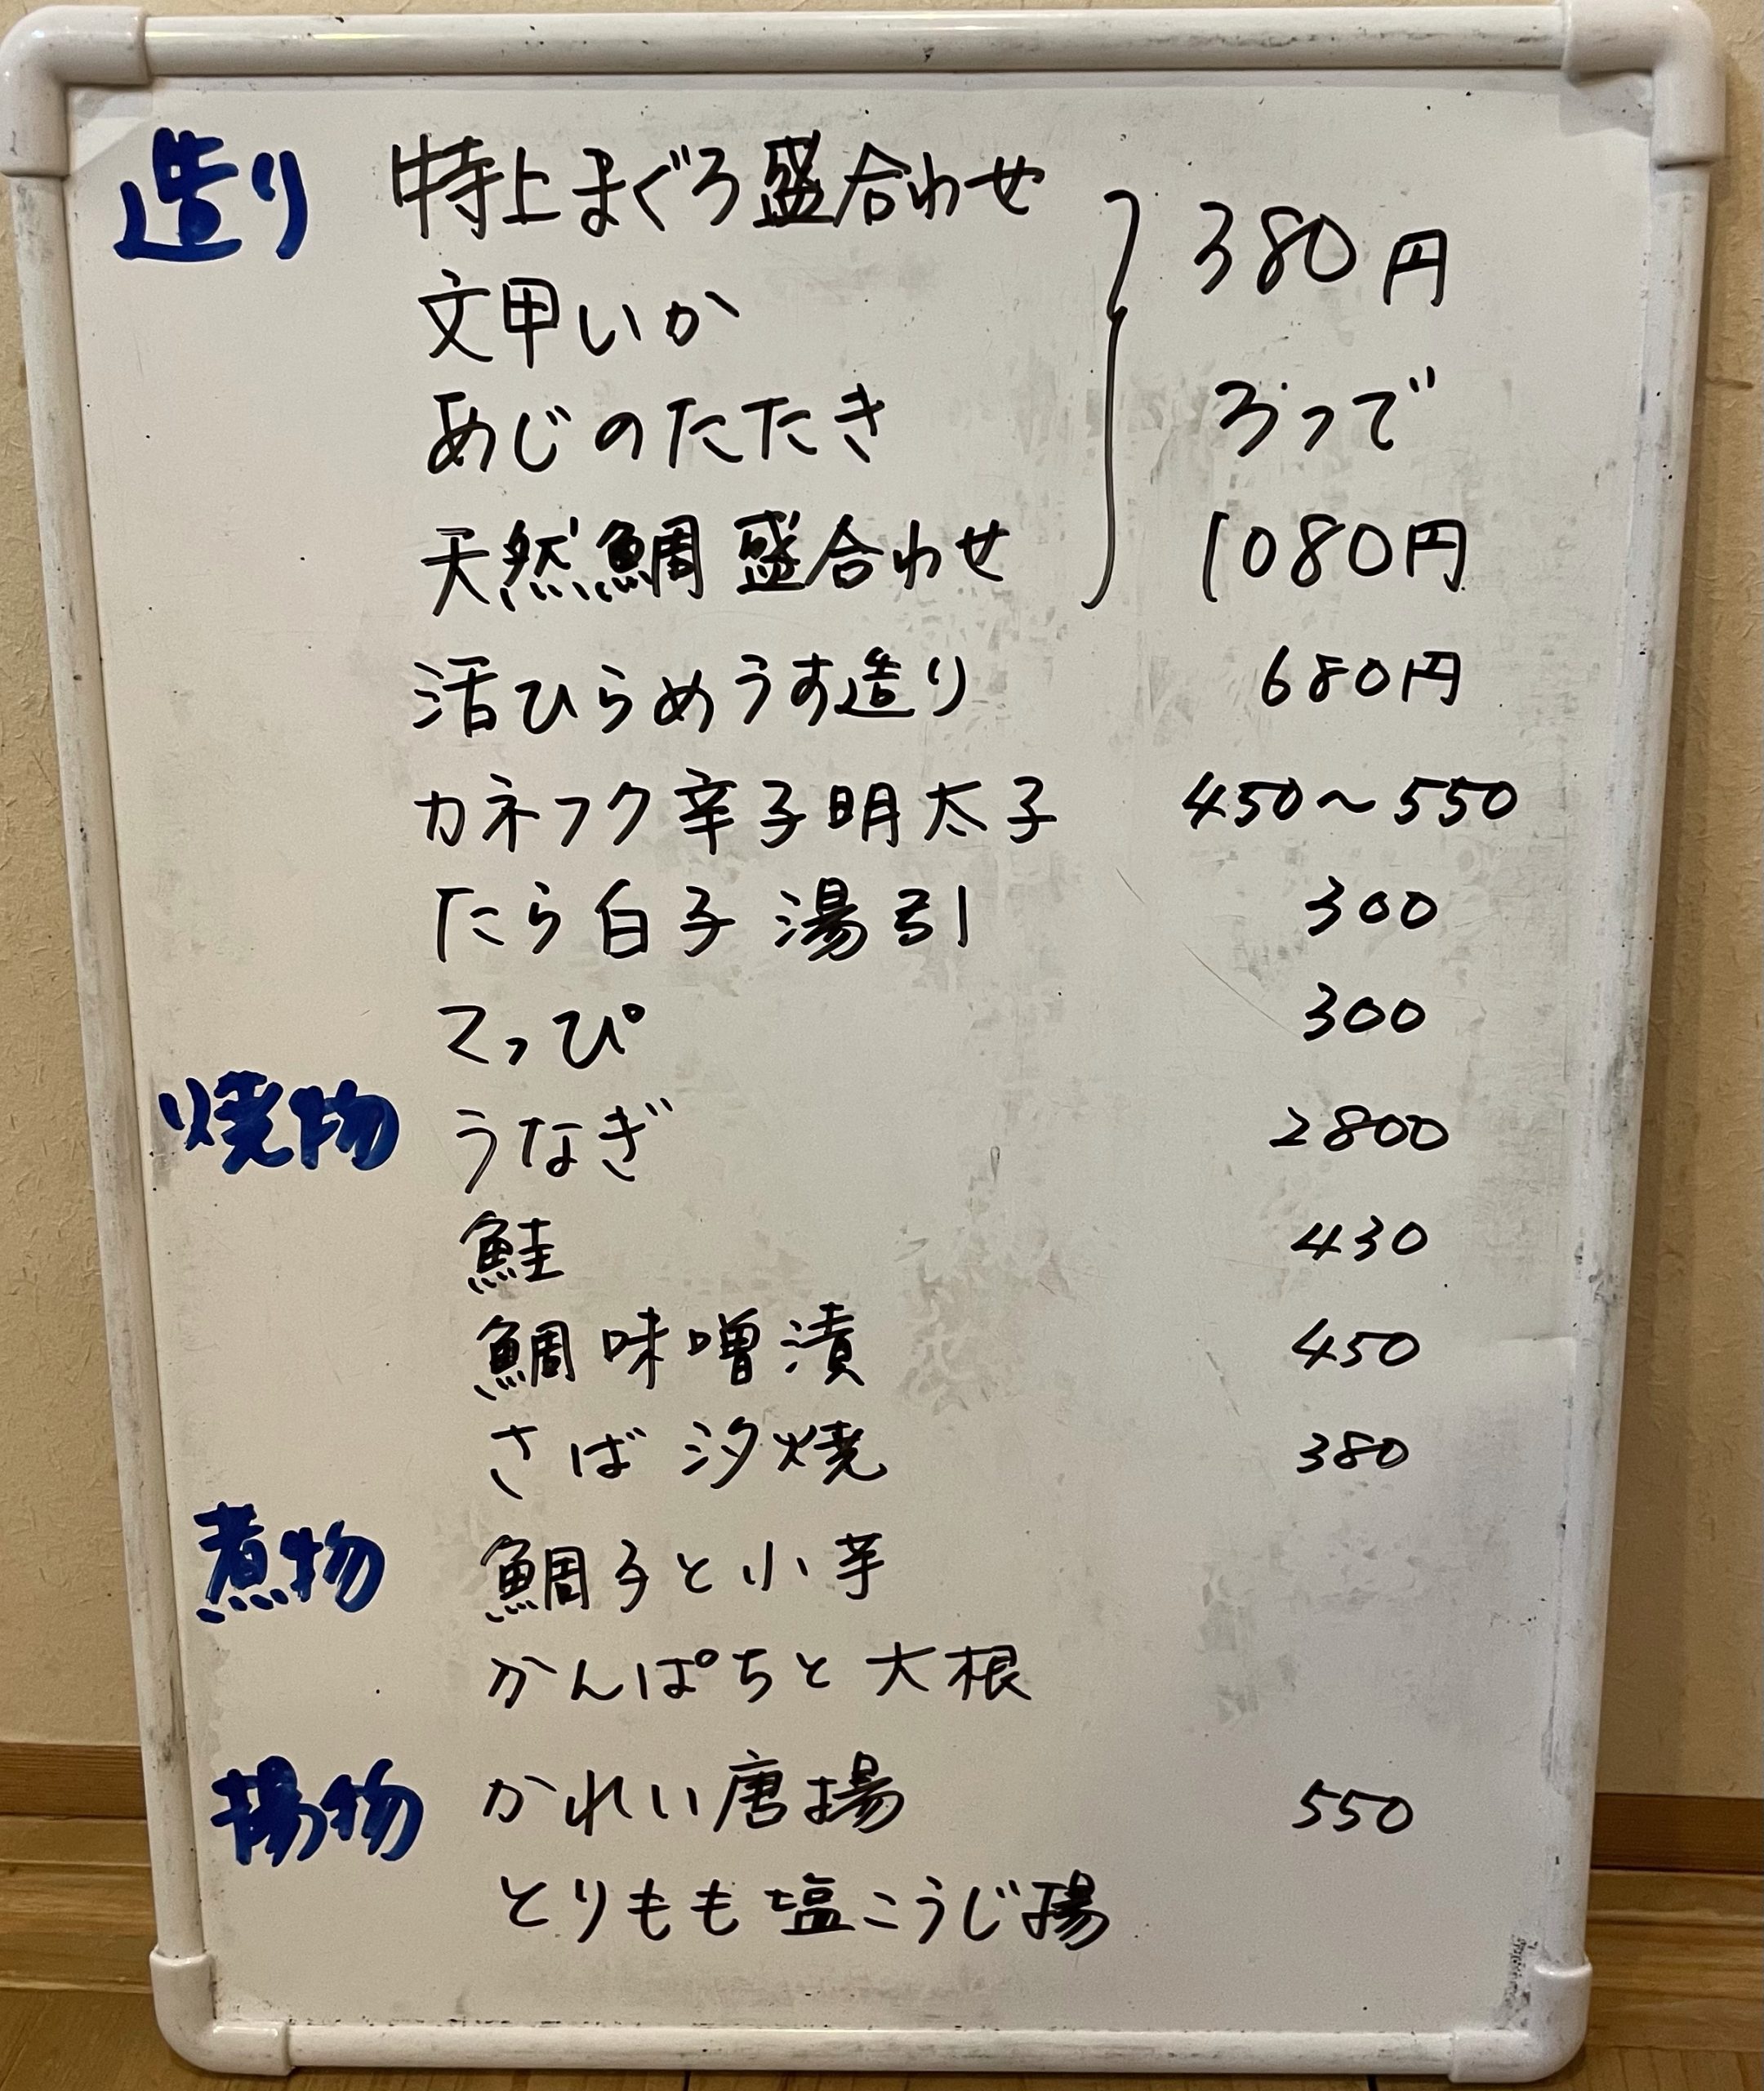 造り 特上まぐろ盛合わせ
文甲いか
380円
あじのたたき
3つで
天然鯛盛合わせ
1080円
活ひらめうす造り 680円
カネフク辛子明太子 450〜550
たら白子 湯引 300
てっぴ 300
焼物 うなぎ 2800
鮭 430
鯛味噌漬 450
さば汐焼 380
煮物 鯛子と小芋
かんぱちと大根
揚物 かれい唐揚 550
とりもも塩こうじ揚